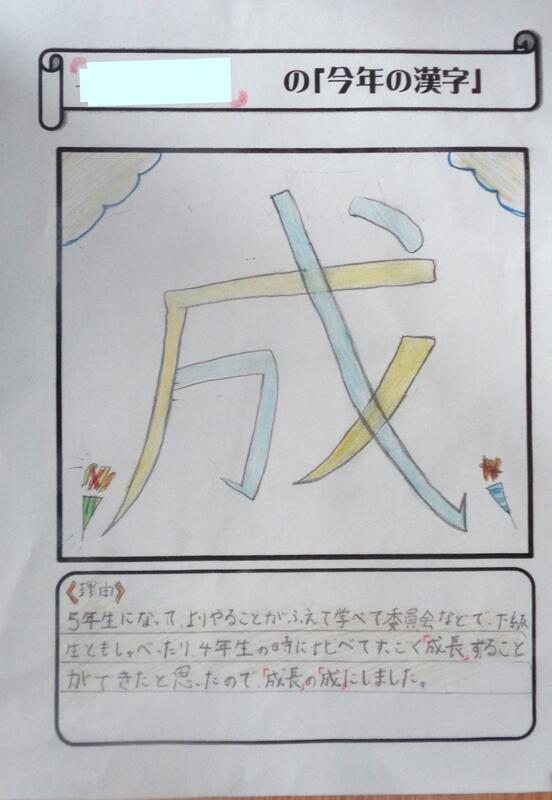 の「今年の漢字」
成
《理由》
5年生になって、よりやることがふえて学べて委員会などで、下級
生ともしゃべったり、4年生の時に比べてすごく「成長」すること
ができたと思ったので、「成長」の「成」にしました。